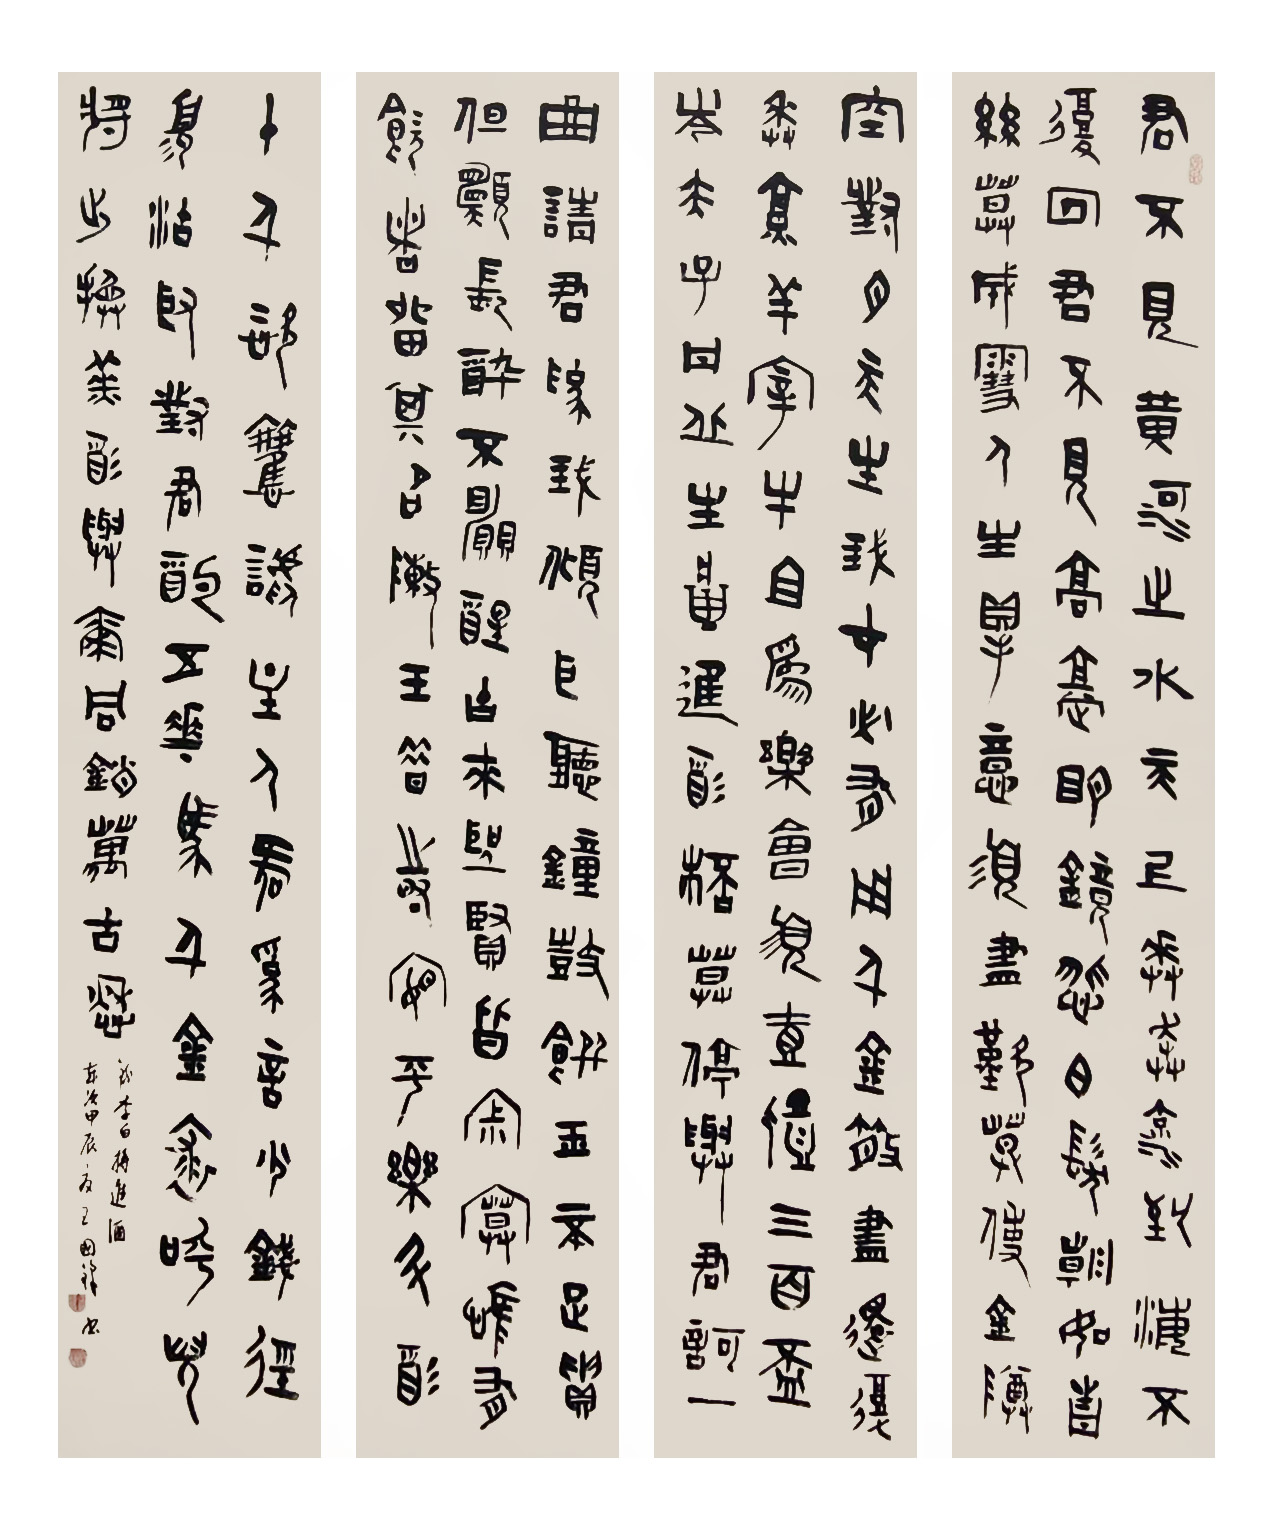 君不見黃河之水天上來奔流到海不
復回君不見高堂明鏡悲白髮朝如青
絲暮成雪人生得意須盡歡莫使金樽
空對月天生我材必有用千金散盡還復
來烹羊宰牛且為樂會須壹飲三百杯
岑夫子丹丘生將進酒杯莫停與君歌一
曲請君為我傾耳聽鐘鼓饌玉不足貴
但願長醉不願醒古來聖賢皆寂寞惟有
飲者留其名陳王昔時宴平樂斗酒
十千恣歡謔主人為何言少錢徑
須沽取對君酌五花馬千金裘呼兒
將出換美酒與爾同銷萬古愁
錄李白將進酒
歲次甲辰之夏王國祥书